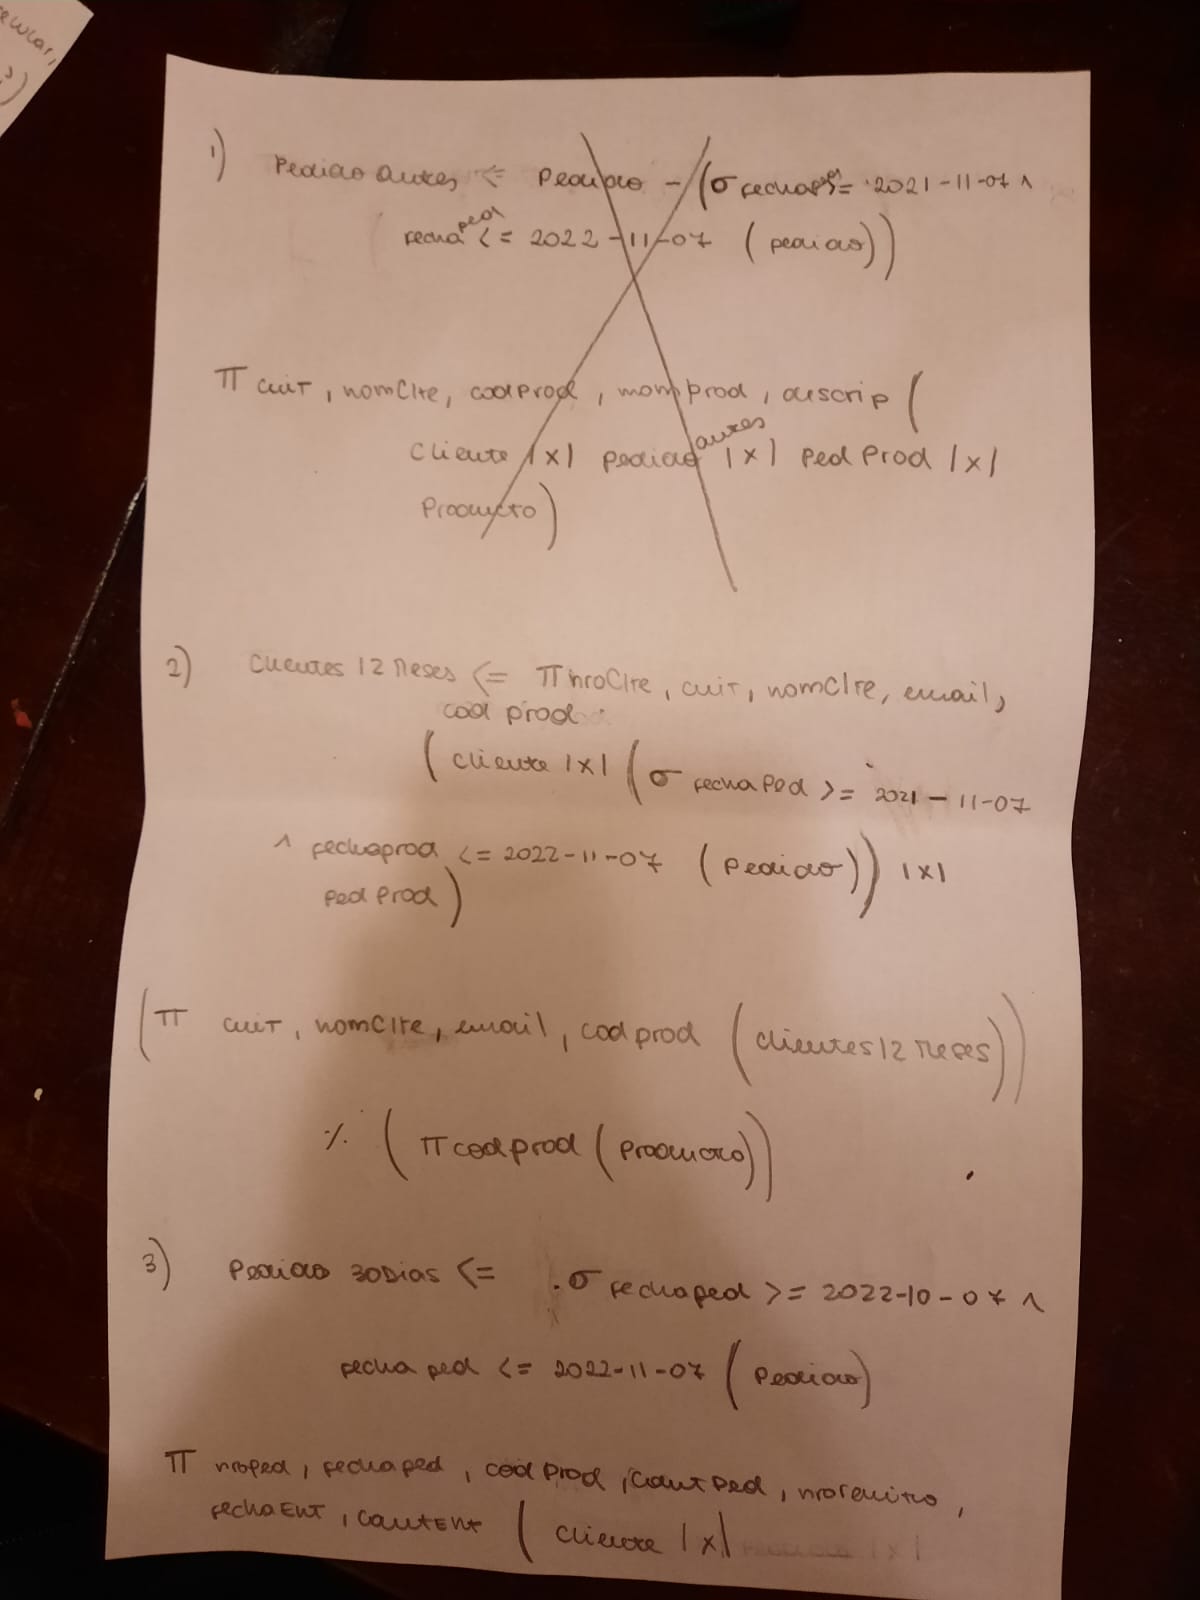 ecular,
1) Pedido antes <= Pedido - (σ fechaped>= 2021-11-07 ^
fechaped <= 2022-11-07 (pedido))
π cuit, nomClte, codProd, nomprod, descrip (
Cliente |x| pedido antes |x| Ped Prod |x|
Producto)
2) Clientes 12 Meses <= π nroClte, cuit, nomClte, email,
cod prod
(cliente |x| (σ fechaPed >= 2021-11-07
^ fechaprod <= 2022-11-07 (Pedido)) |x|
Ped Prod)
(π cuit, nomClte, email, cod prod (clientes 12 Meses))
% (π codprod (Producto))
3) Pedido 30Dias <= σ fechaped >= 2022-10-07 ^
fecha ped <= 2022-11-07 (Pedido)
π nroped, fechaped, cod Prod, CantPed, nroremito,
fechaEnt, cantEnt (cliente |x|